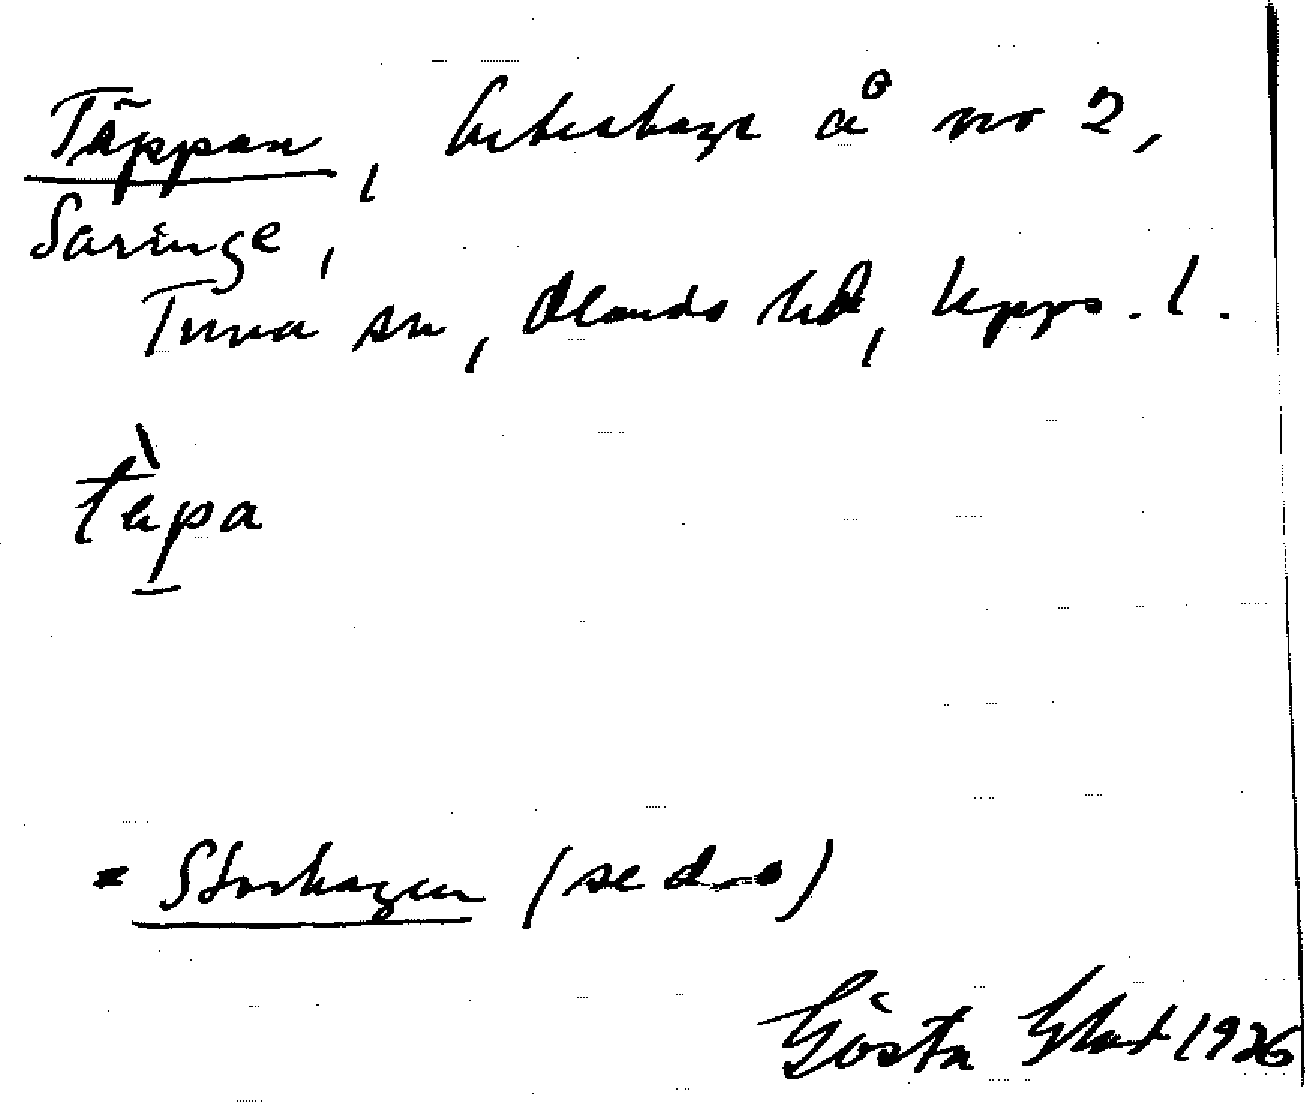 Täppan, beteshage å nr 2,
Saringe,
Tuna sn, Olands hd, Upps. l.
tèpa
= Storhagen (se d.o)
Gösta 1926